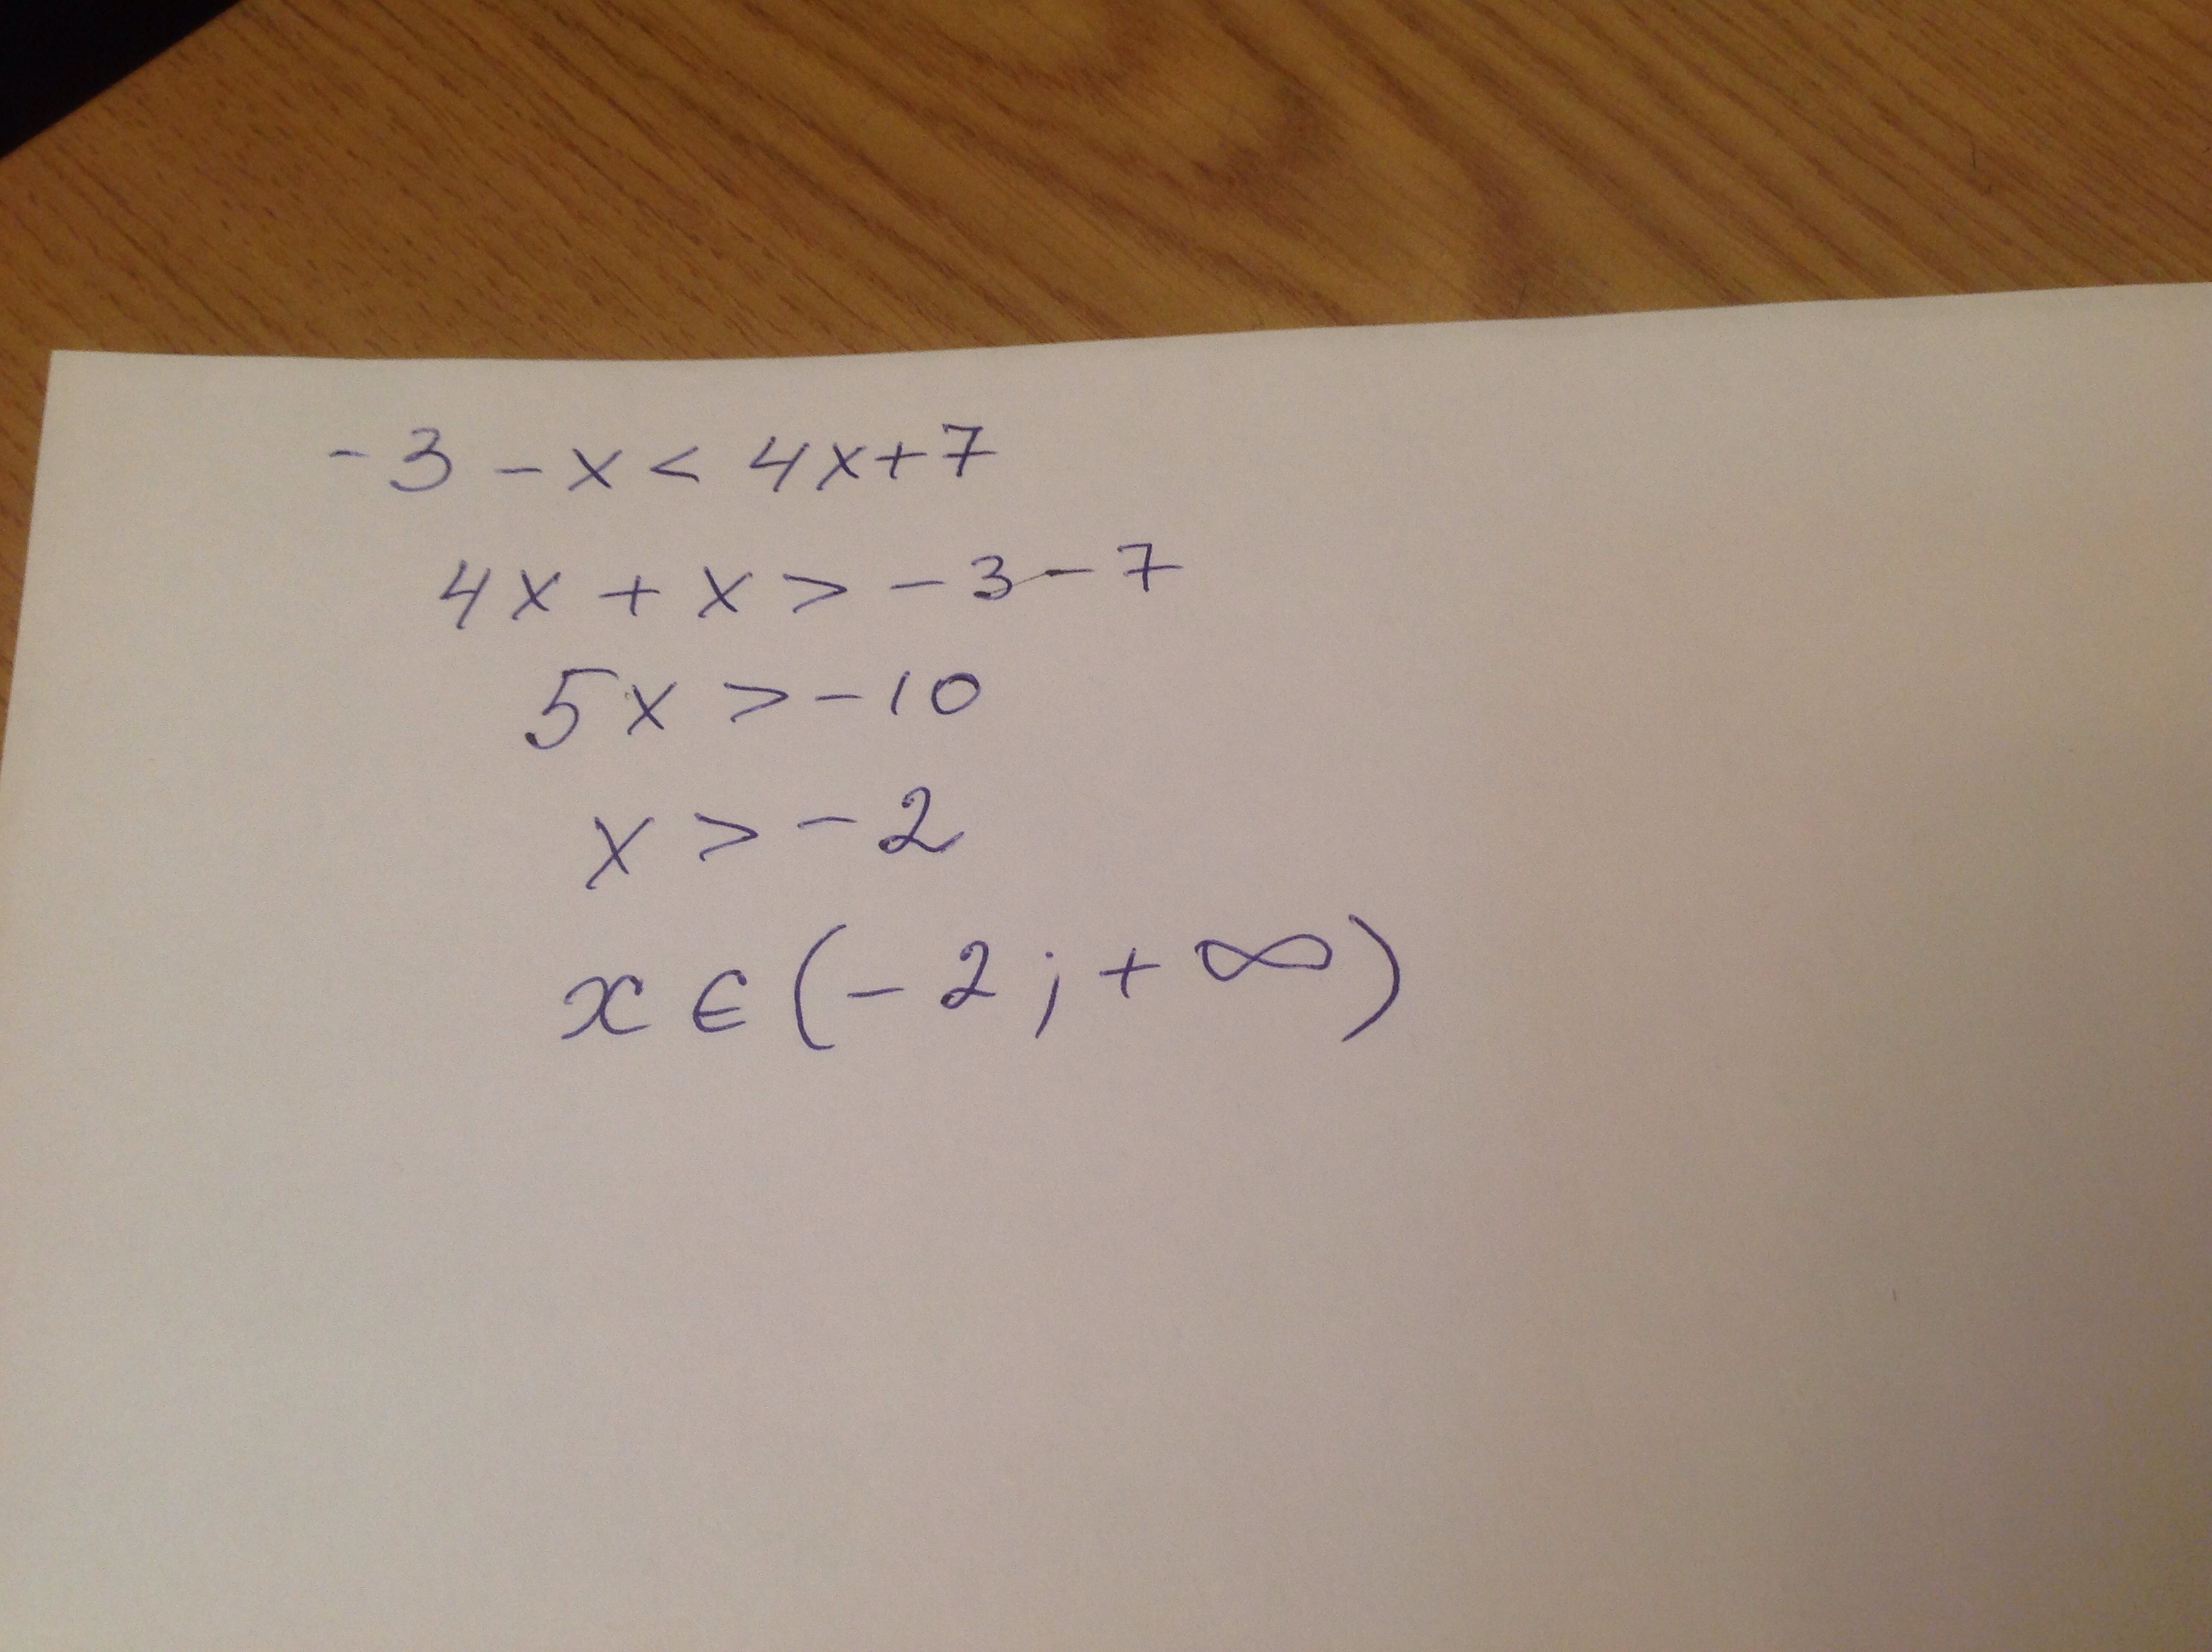 -3 - x < 4x+7
4x + x > -3-7
5x > -10
x > -2
x ∈ (-2; +∞)